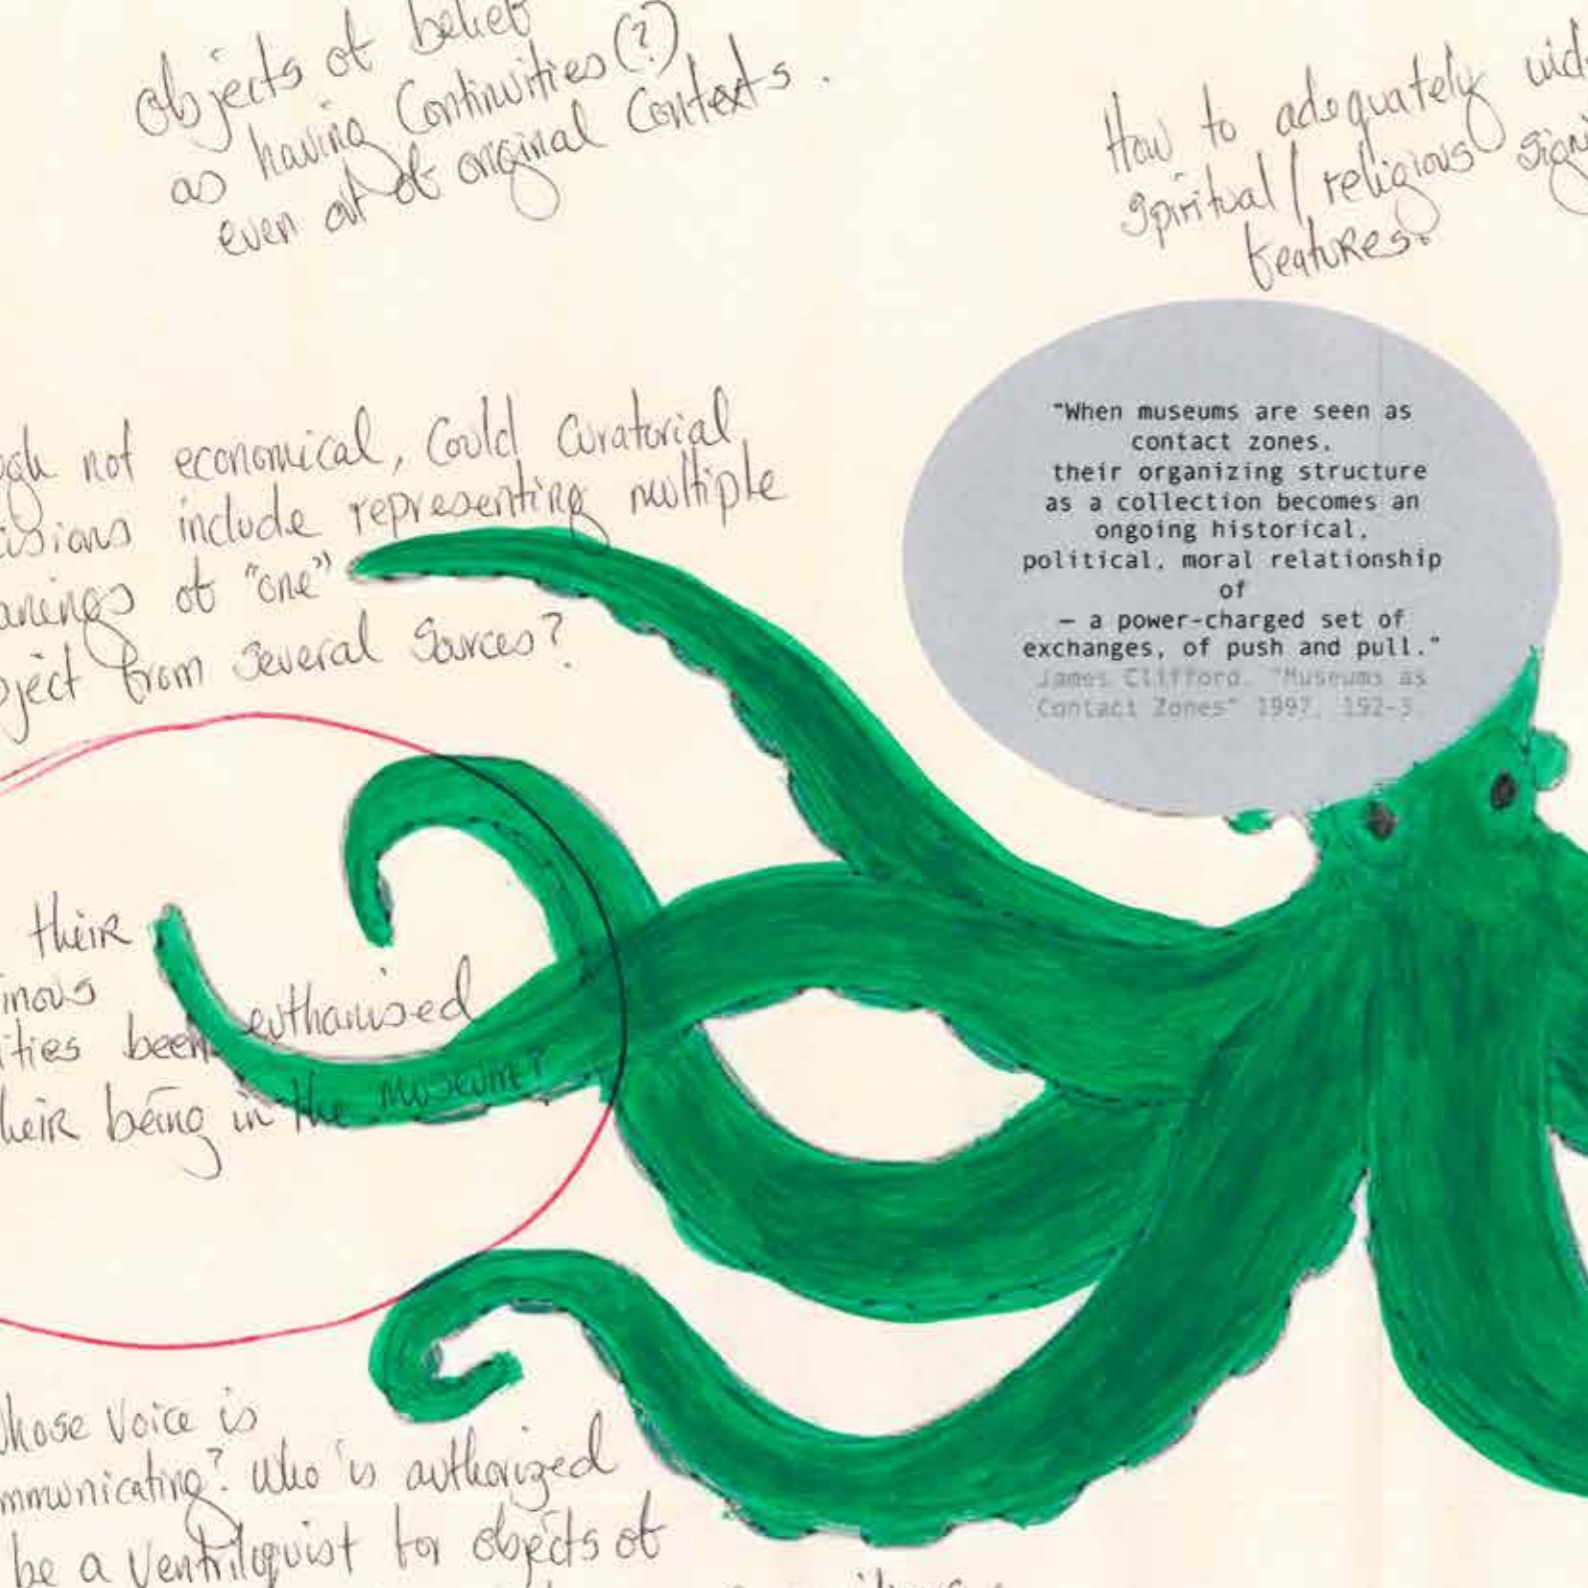 objects of belief
as having Continuities (?)
even out of original Contexts.
How to adequately
spiritual / religious
features.
"When museums are seen as
contact zones,
their organizing structure
as a collection becomes an
ongoing historical,
political, moral relationship
of
— a power-charged set of
exchanges, of push and pull."
James Clifford, "Museums as
Contact Zones" 1997, 192-3.
not economical, Could Curatorial
include representing multiple
of "one"
from Several Sources?
their
been euthanised
being in the museum?
Voice is
Who is authorized
be a Ventriloquist for objects of